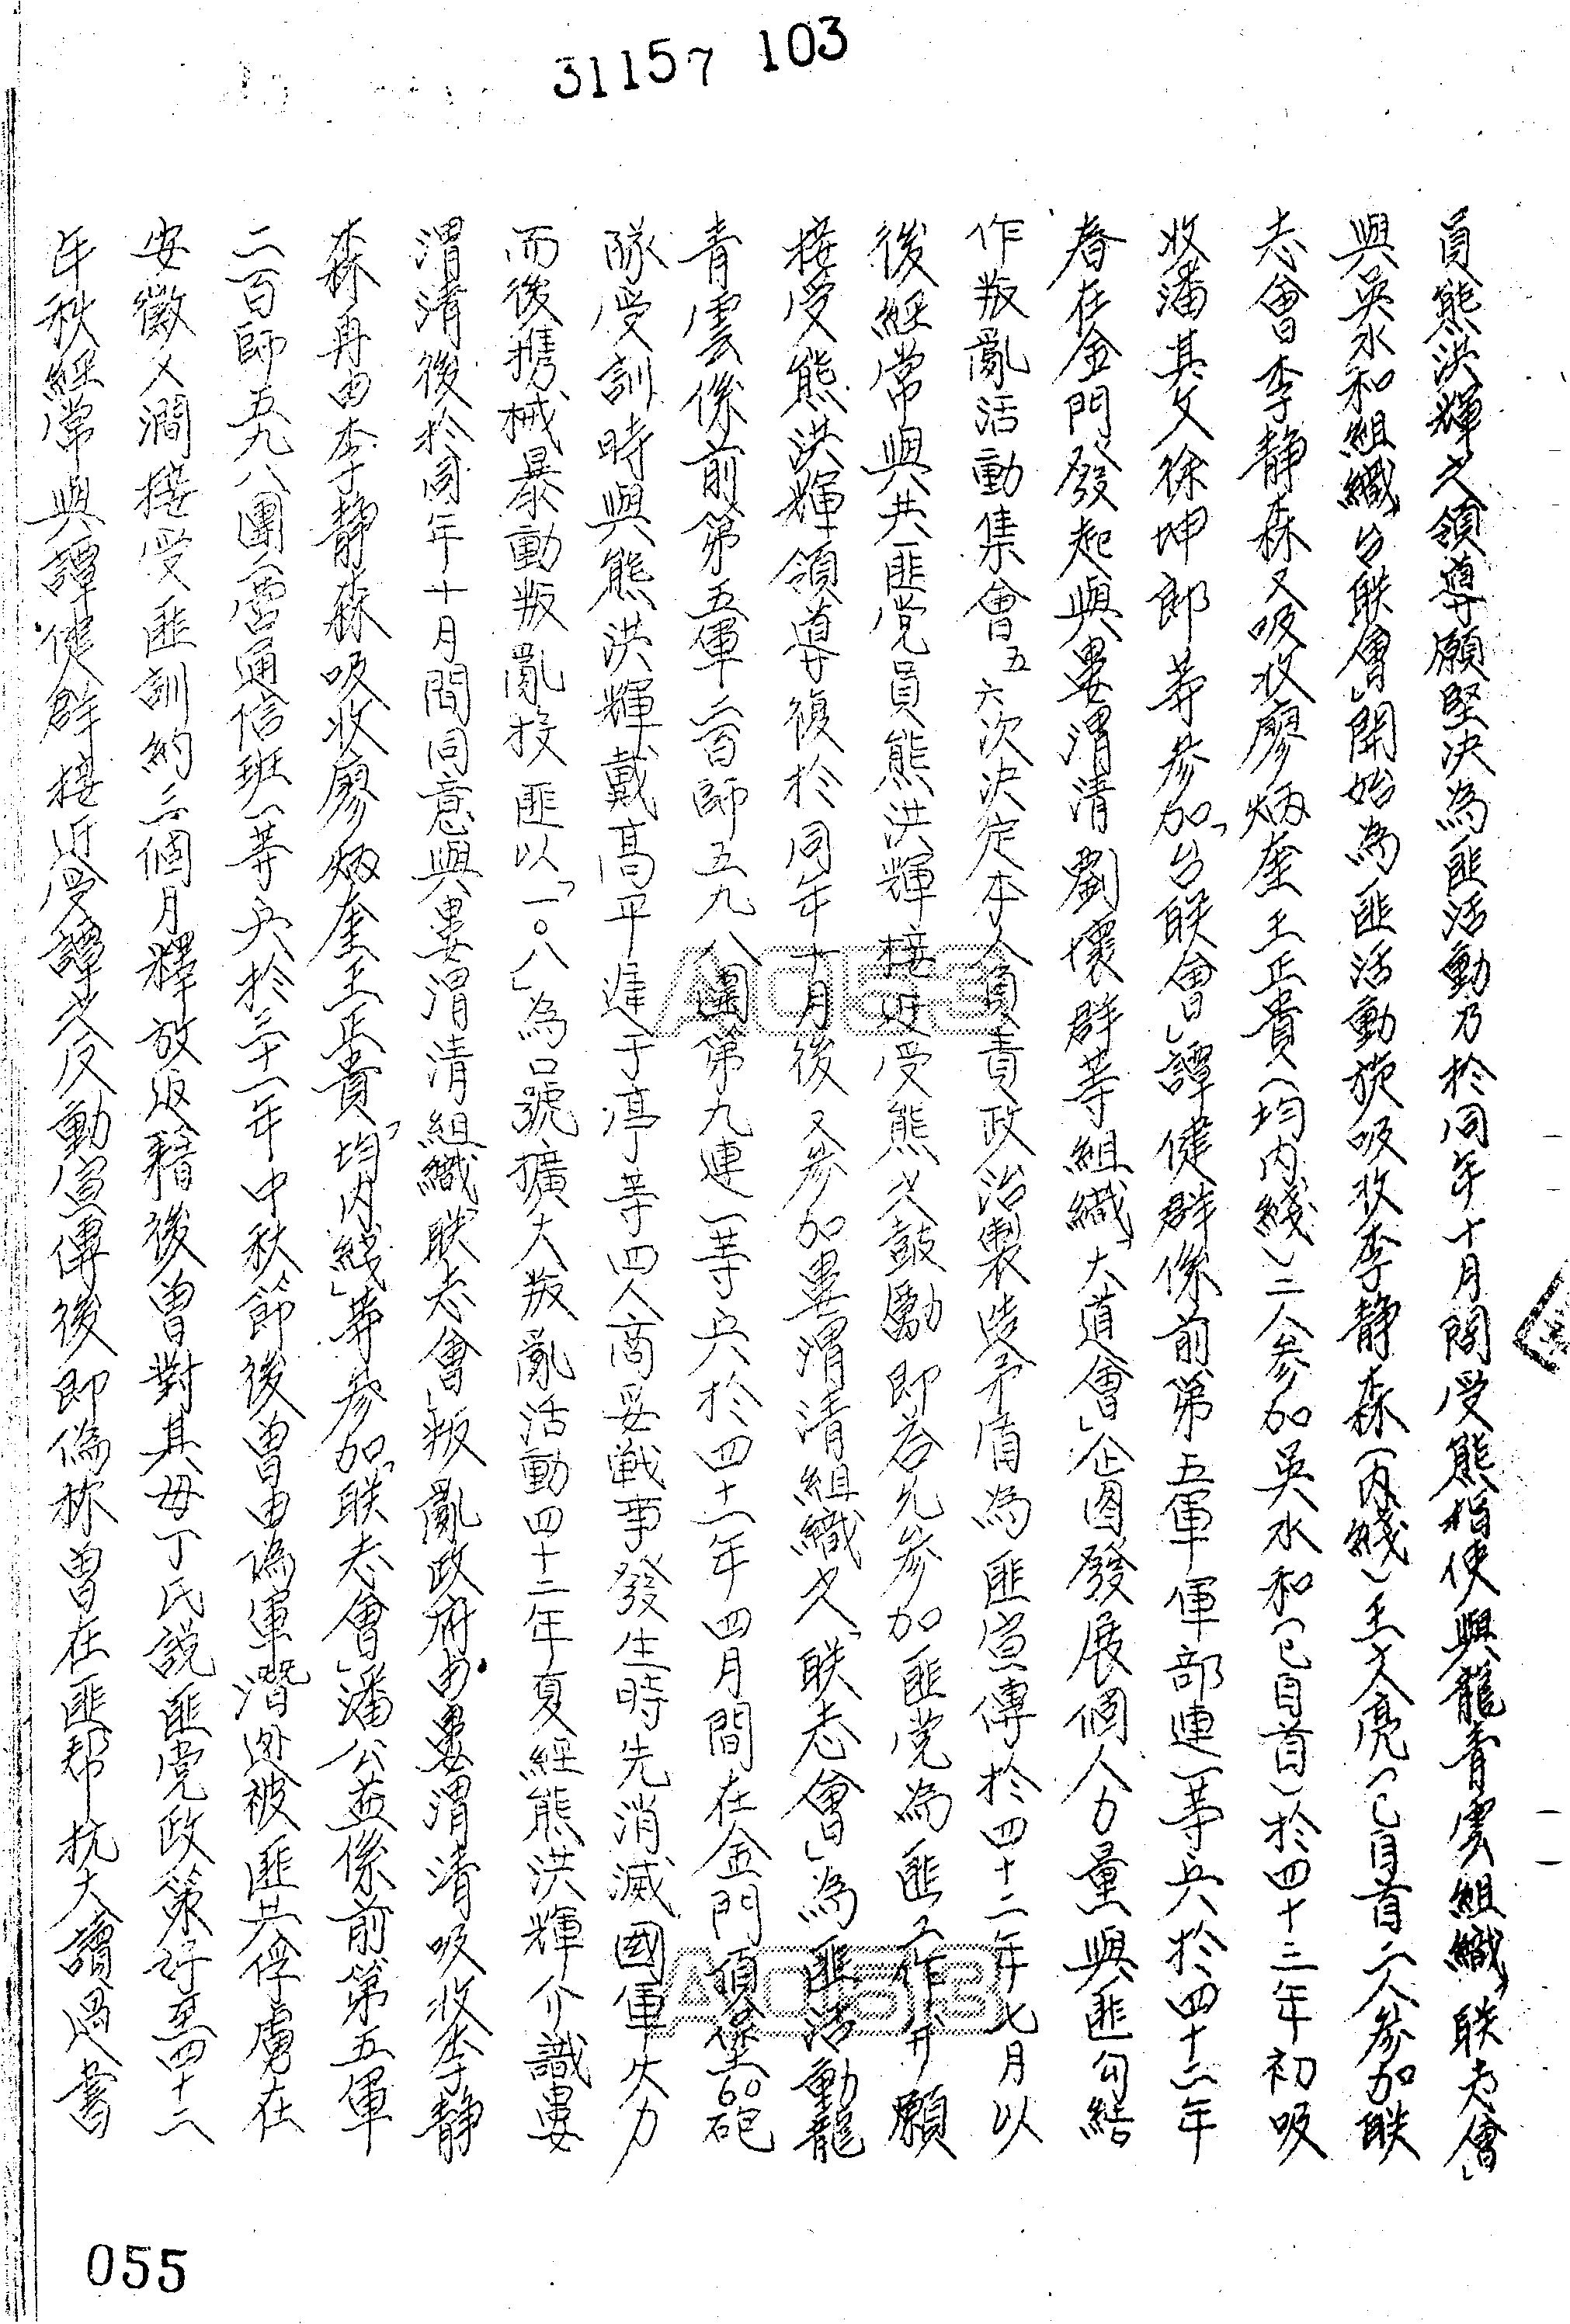 31157 103
員熊洪輝之領導願堅决為匪活動乃於同年十月間受熊指使與龍青雲組織「联志會」
與吳水和組織「台联會」開始為匪活動旋吸收李靜森（內綫）王文亮（已自首二人参加联
志會李靜森又吸收廖炳奎王正貴（均內綫）二人参加吳水和（已自首）於四十三年初吸
收潘其文徐坤郎等参加「台联會」譚健群係前第五軍軍部連一等兵於四十二年
春在金門發起與婁渭清劉懷群等組織「大道會」企图發展個人力量與匪勾結
作叛亂活動集會五六次决定本人負責政治製造矛盾為匪宣傳於四十二年七月以
後經常與共匪党員熊洪輝接近受熊之鼓勵即答允参加匪党為匪工作并願
接受熊洪輝領導復於同年十月後又参加婁渭清組織之「联志會」為匪活動龍
青雲係前第五軍二百師五九八團第九連一等兵於四十一年四月間在金門頂堡60砲
隊受訓時與熊洪輝戴高平遲于亭等四人商妥戰事發生時先消滅國軍火力
而後携械暴動叛亂投匪以「一○八」為口號擴大叛亂活動四十二年夏經熊洪輝介識婁
渭清後於同年十月間同意與婁渭清組織「联志會」叛亂政府由婁渭清吸收李靜
森再由李靜森吸收廖炳奎王正貴「均內綫」等参加「联志會」潘公益係前第五軍
二百師五九八團二營通信班一等兵於三十一年中秋節後曾由偽軍潛逃被匪共俘虜在
安徽乂澗接受匪訓約三個月釋放返籍後曾對其母丁氏説匪党政策好至四十二
年秋經常與譚健群接近受譚之反動宣傳後即偽称曾在匪帮抗大讀過書
055